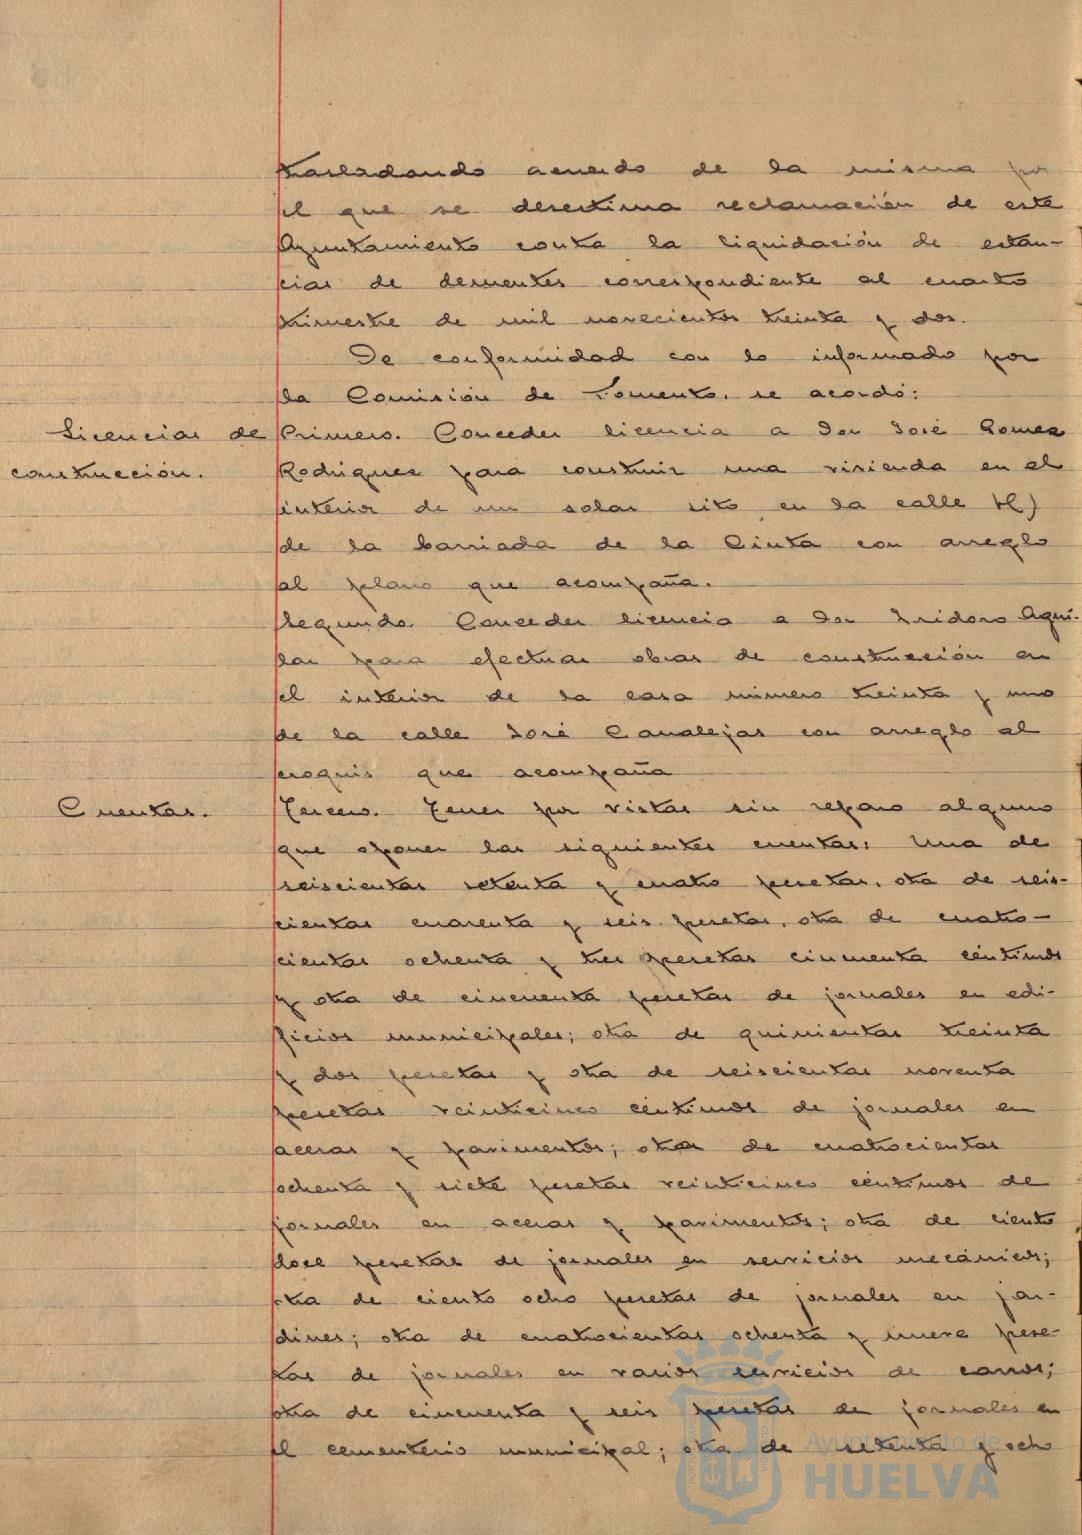 trasladando acuerdo de la misma por
el que se desestima reclamación de este
Ayuntamiento contra la liquidación de estan-
cias de dementes correspondiente al cuarto
trimestre de mil novecientos treinta y dos.
De conformidad con lo informado por
la Comisión de Fomento, se acordó:
Licencias de
construcción.
Primero. Conceder licencia a Don José Gomez
Rodriguez para construir una vivienda en el
interior de un solar sito en la calle H)
de la barriada de la Cinta con arreglo
al plano que acompaña.
Segundo. Conceder licencia a Don Isidoro Agui-
lar para efectuar obras de construcción en
el interior de la casa número treinta y uno
de la calle José Canalejas con arreglo al
croquis que acompaña
Cuentas.
Tercero. Tener por vistas sin reparo alguno
que oponer las siguientes cuentas: Una de
seiscientas setenta y cuatro pesetas, otra de seis-
cientas cuarenta y seis pesetas, otra de cuatro-
cientas ochenta y tres pesetas cincuenta céntimos
y otra de cincuenta pesetas de jornales en edi-
ficios municipales; otra de quinientas treinta
y dos pesetas y otra de seiscientas noventa
pesetas veinticinco céntimos de jornales en
aceras y pavimentos; otra de cuatrocientas
ochenta y siete pesetas veinticinco céntimos de
jornales en aceras y pavimentos; otra de ciento
doce pesetas de jornales en servicios mecánicos;
otra de ciento ocho pesetas de jornales en jar-
dines; otra de cuatrocientas ochenta y nueve pese-
tas de jornales en varios servicios de carros;
otra de cincuenta y seis pesetas de jornales en
el cementerio municipal; otra de setenta y ocho
Ayuntamiento de
HUELVA